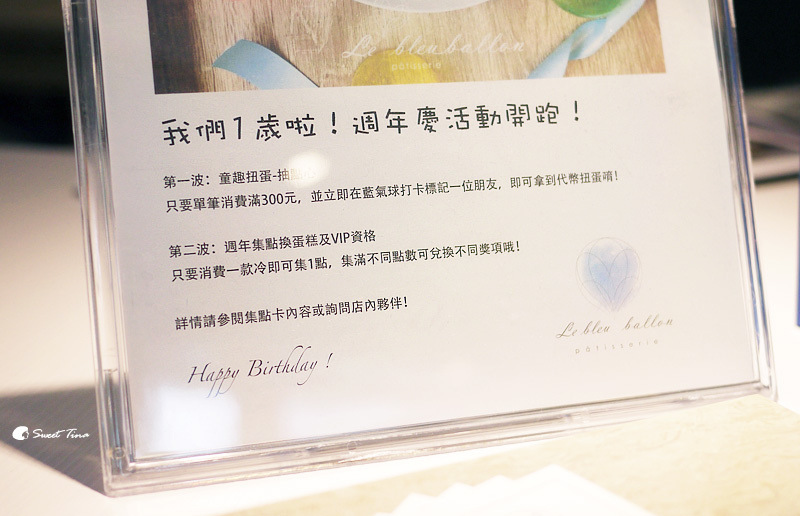 Le bleu ballon
pâtisserie
我們1歲啦！週年慶活動開跑！
第一波：童趣扭蛋-抽
只要單筆消費滿300元，並立即在藍氣球打卡標記一位朋友，即可拿到代幣扭蛋唷!
第二波：週年集點換蛋糕及VIP資格
只要消費一款冷即可集1點，集滿不同點數可兌換不同獎項哦!
詳情請參閱集點卡內容或詢問店內夥伴!
Happy Birthday !
Le bleu ballon
pâtisserie
Sweet Tina